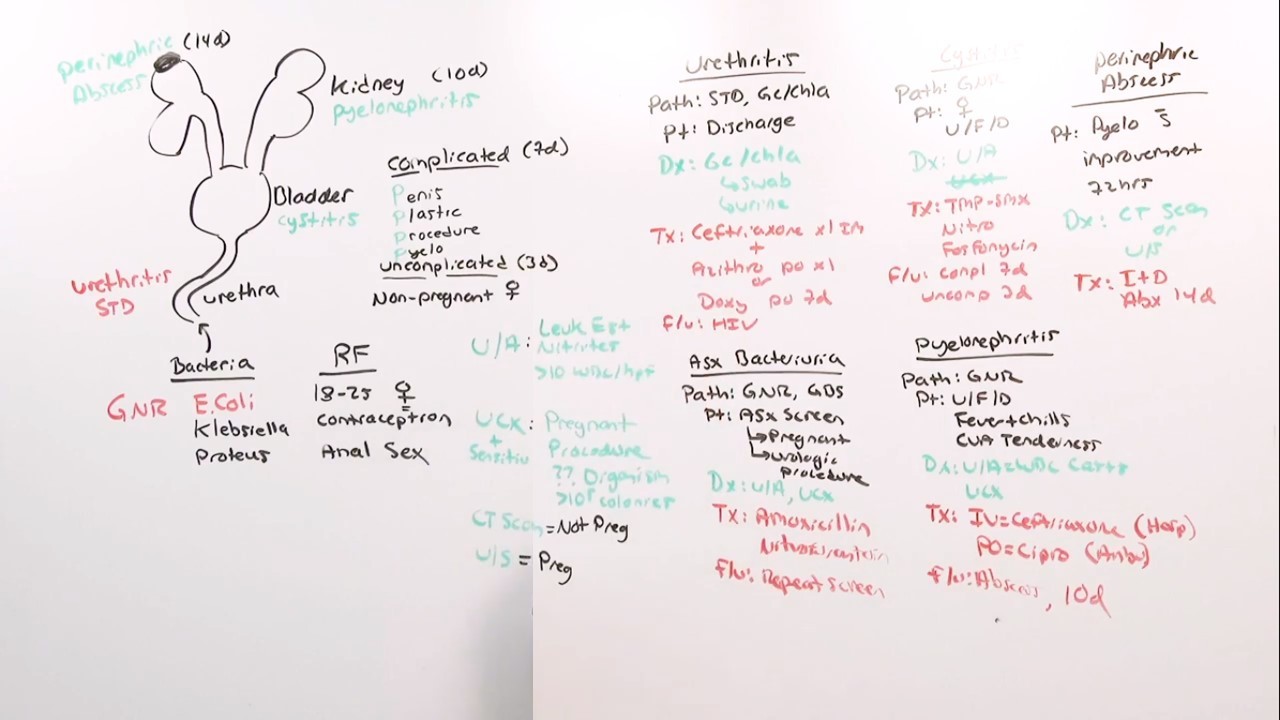 perinephric (14d)
Abscess
Kidney (10d)
pyelonephritis
Complicated (7d)
Penis
Plastic
Procedure
Pyelo
uncomplicated (3d)
Non-pregnant ♀
Bladder
cystitis
urethritis
STD
urethra
Bacteria
GNR E.Coli
Klebsiella
Proteus
RF
18-25 ♀
contraception
Anal Sex
U/A: Leuk Est
Nitrites
>10 WBC/hpf
UCX: Pregnant
+
Sensitiv Procedure
?? Organism
>10⁵ colonies
CT Scan = Not Preg
U/S = Preg
Urethritis
Path: STD, Gc/Chla
Pt: Discharge
Dx: Gc/Chla
↳swab
↳urine
Tx: Ceftriaxone x1 IM
+
Azithro po x1
or
Doxy po 7d
F/u: HIV
Asx Bacteriuria
Path: GNR, GBS
Pt: ASx Screen
↳Pregnant
↳urologic
procedure
Dx: U/A, UCX
Tx: Amoxicillin
Nitrofurantoin
F/u: Repeat Screen
Cystitis
Path: GNR
Pt: ♀
U/F/D
Dx: U/A
UCX
Tx: TMP-SMX
Nitro
Fosfomycin
F/u: compl 7d
uncomp 3d
Pyelonephritis
Path: GNR
Pt: U/F/D
Fever+chills
CVA Tenderness
Dx: U/A=WBC Casts
UCX
Tx: IV=Ceftriaxone (Hosp)
PO=Cipro (Amb)
F/u: Abscess, 10d
perinephric
Abscess
Pt: Pyelo s̄
improvement
72hrs
Dx: CT Scan
or
U/S
Tx: I+D
Abx 14d